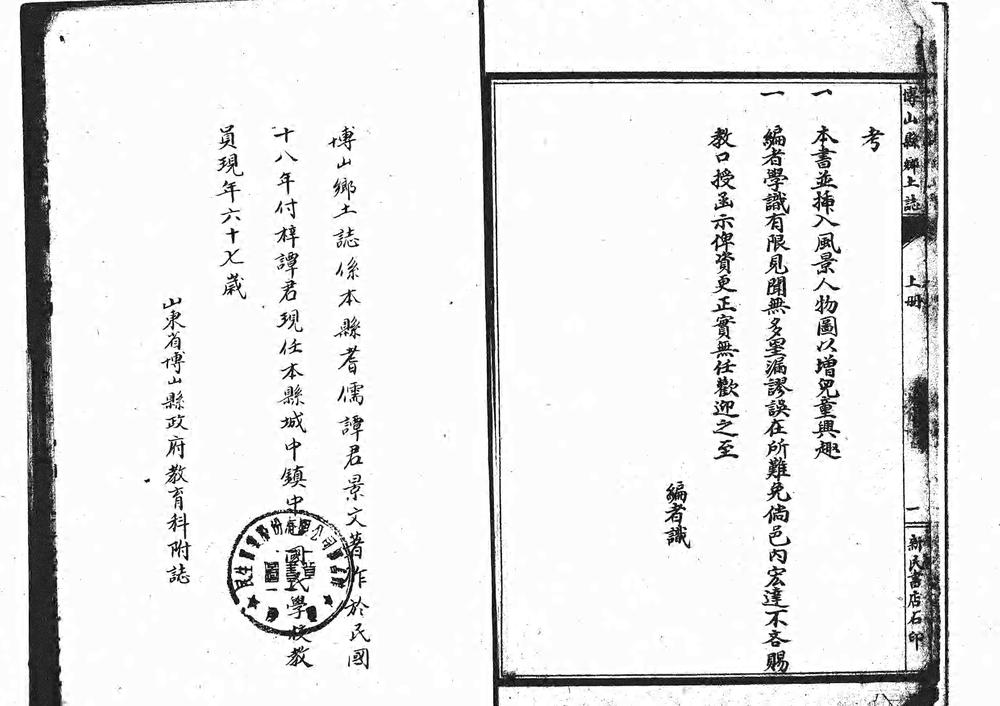 博山縣鄉土誌
上册
一
新民書店石印
考
一 本書並揷入風景人物圖以增兒童興趣
一 編者學識有限見聞無多罣漏謬誤在所難免倘邑內宏達不吝賜
教口授函示俾資更正實無任歡迎之至
編者識
博山鄉土誌係本縣耆儒譚君景文著作於民國
十八年付梓譚君現任本縣城中鎮中心國民學校教
員現年六十七歲
山東省博山縣政府教育科附誌